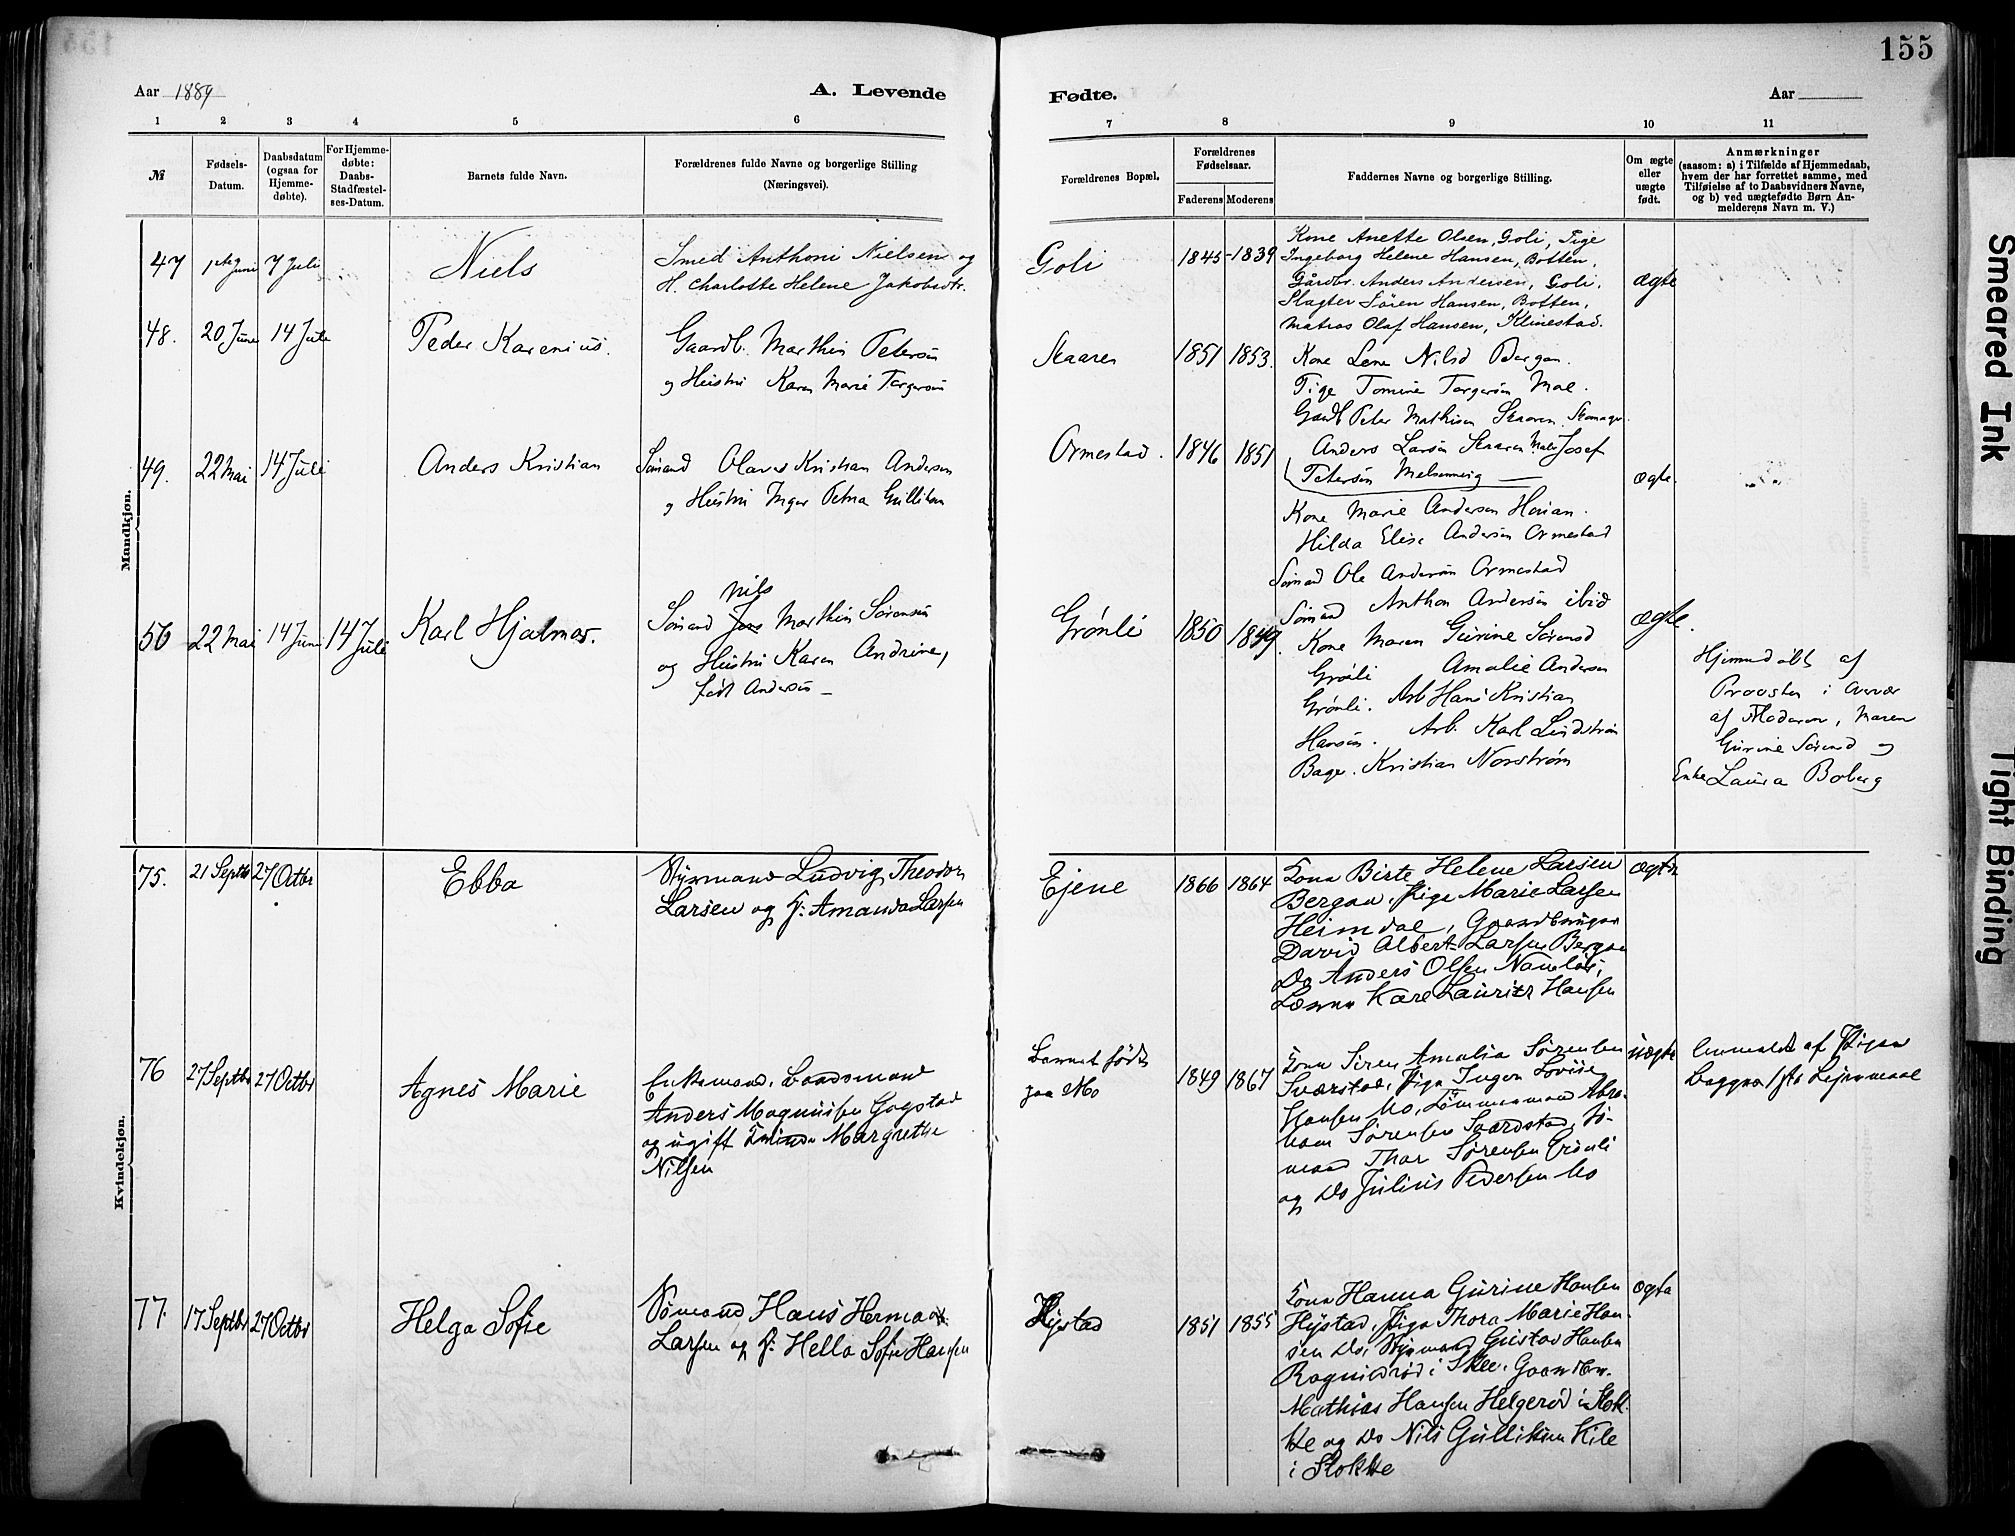 155
Aar 1889
A. Levende
Fødte.
Aar
1 2 3 4 5 6 7 8 9 10 11
№
Fødsels-
Datum.
Daabsdatum
(ogsaa for
Hjemme-
døbte).
For Hjemme-
døbte:
Daabs-
Stadfæstel-
ses-Datum.
Barnets fulde Navn.
Forældrenes fulde Navne og borgerlige Stilling
(Næringsvei).
Forældrenes Bopæl.
Forældrenes
Fødselsaar.
Faderens
Moderens
Faddernes Navne og borgerlige Stilling.
Om ægte
eller
uægte
født.
Anmærkninger
(saasom: a) i Tilfælde af Hjemmedaab,
hvem der har forrettet samme, med
Tilføielse af to Daabsvidners Navne,
og b) ved uægtefødte Børn An-
melderens Navn m. V.)
Mandkjøn.
47
1ste Juni
7 Juli
Niels
Smed Anthoni Nielsen og
H. Charlotte Helene Jakobsdtr.
Goli
1845
1839
Kone Anette Olsen, Goli, Pige
Ingeborg Helene Hansen, Botten,
Gårdbr. Anders Andersen, Goli,
Slagter Sören Hansen, Botten,
Matros Olaf Hansen, Klinestad.
ægte
48.
20 June
14 Juli
Peder Karenius.
Gaardb. Marthin Petersen
og Hustru Karen Marie Torgersen
Skaaren
1851
1853.
Kone Lene Nilsd Bergan.
Pige Tomine Torgersen Moe.
Gaardb Peter Mathisen Skaaren.
Anders Larsen Skaaren Josef
Petersen Melsomvig
49.
22 Mai
14 Juli
Anders Kristian
Sömand Olaves Kristian Andersen
og Hustru Inger Petra Gulliksen
Ormestad.
1846
1851
ægte.
Kone Marie Andersen
Hilda Elise Andersen Ormestad
Sömand Ole Andersen Ormestad
Sömand Anthon Andersen ibid
50
22 Mai
14 Juni
14 Juli
Karl Hjalmar.
Nils
Sömand Jens Marthin Sörensen
og Hustru Karen Andrine,
født Andersen
Grönli
1850
1849.
Kone Maren Gurine Sørensd
Grönli Amalie Andersen
Grönli. Arb Hans Kristian
Hansen. Arb. Karl Lindström
Bager. Kristian Norström
ægte.
Hjemmedøbt af
Provsten i Overvær
af Moderen, Maren
Gurine Sörensd og
Enke Laura Boberg
Kvindekjøn.
75.
21 Septbr
27 Octbr
Ebba
Styrmand Ludvig Theodor
Larsen og H: Amanda Larsen
Ejene
1866
1864
Kona Birte Helene Larsen
Bergan, Pige Marie Larsen
Heimdal, Gaardbruger
David Albert Larsen Bergan
Do Anders Olsen Namløs,
Karl Lauritz Hansen
ægte
76
27 Septbr
27 Octbr
Agnes Marie
Enkemand, Baadsmand
Anders Magnussen Gogstad
og ugift Margrethe
Nilsen
Barnet født
paa Mo
1849
1867
Kona Siren Amalia Sørensen
Sværstad, Pige Inger Lovise
Hansen Mo, Tømmermand Abra-
ham Sørensen Sværdstad, Sø-
mand Thor Sørensen Grönli
og Do Julius Pedersen Mo
uægte
Anmeldt af Pigen
77
17 Septbr
27 Octbr
Helga Sofie
Sömand Hans Herman
Larsen og H: Hella Sofie Hansen
Hystad
1851
1855
Kona Hanna Gurine Hansen
Hystad, Pige Thora Marie Han-
sen Do, Styrmand Gustav Hansen
Ragnildrød i Skee, Gaardbr.
Mathias Hansen Helgerød i Stok-
ke og Do Nils Gulliksen Kile
i Stokke
ægte
Smeared Ink
Tight Binding